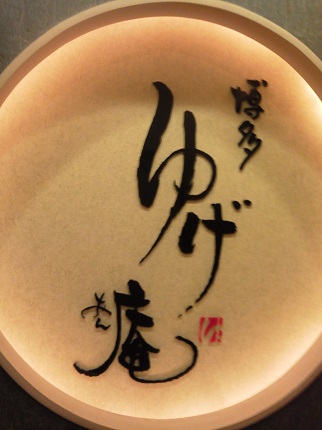 博多
ゆげ
庵
あん